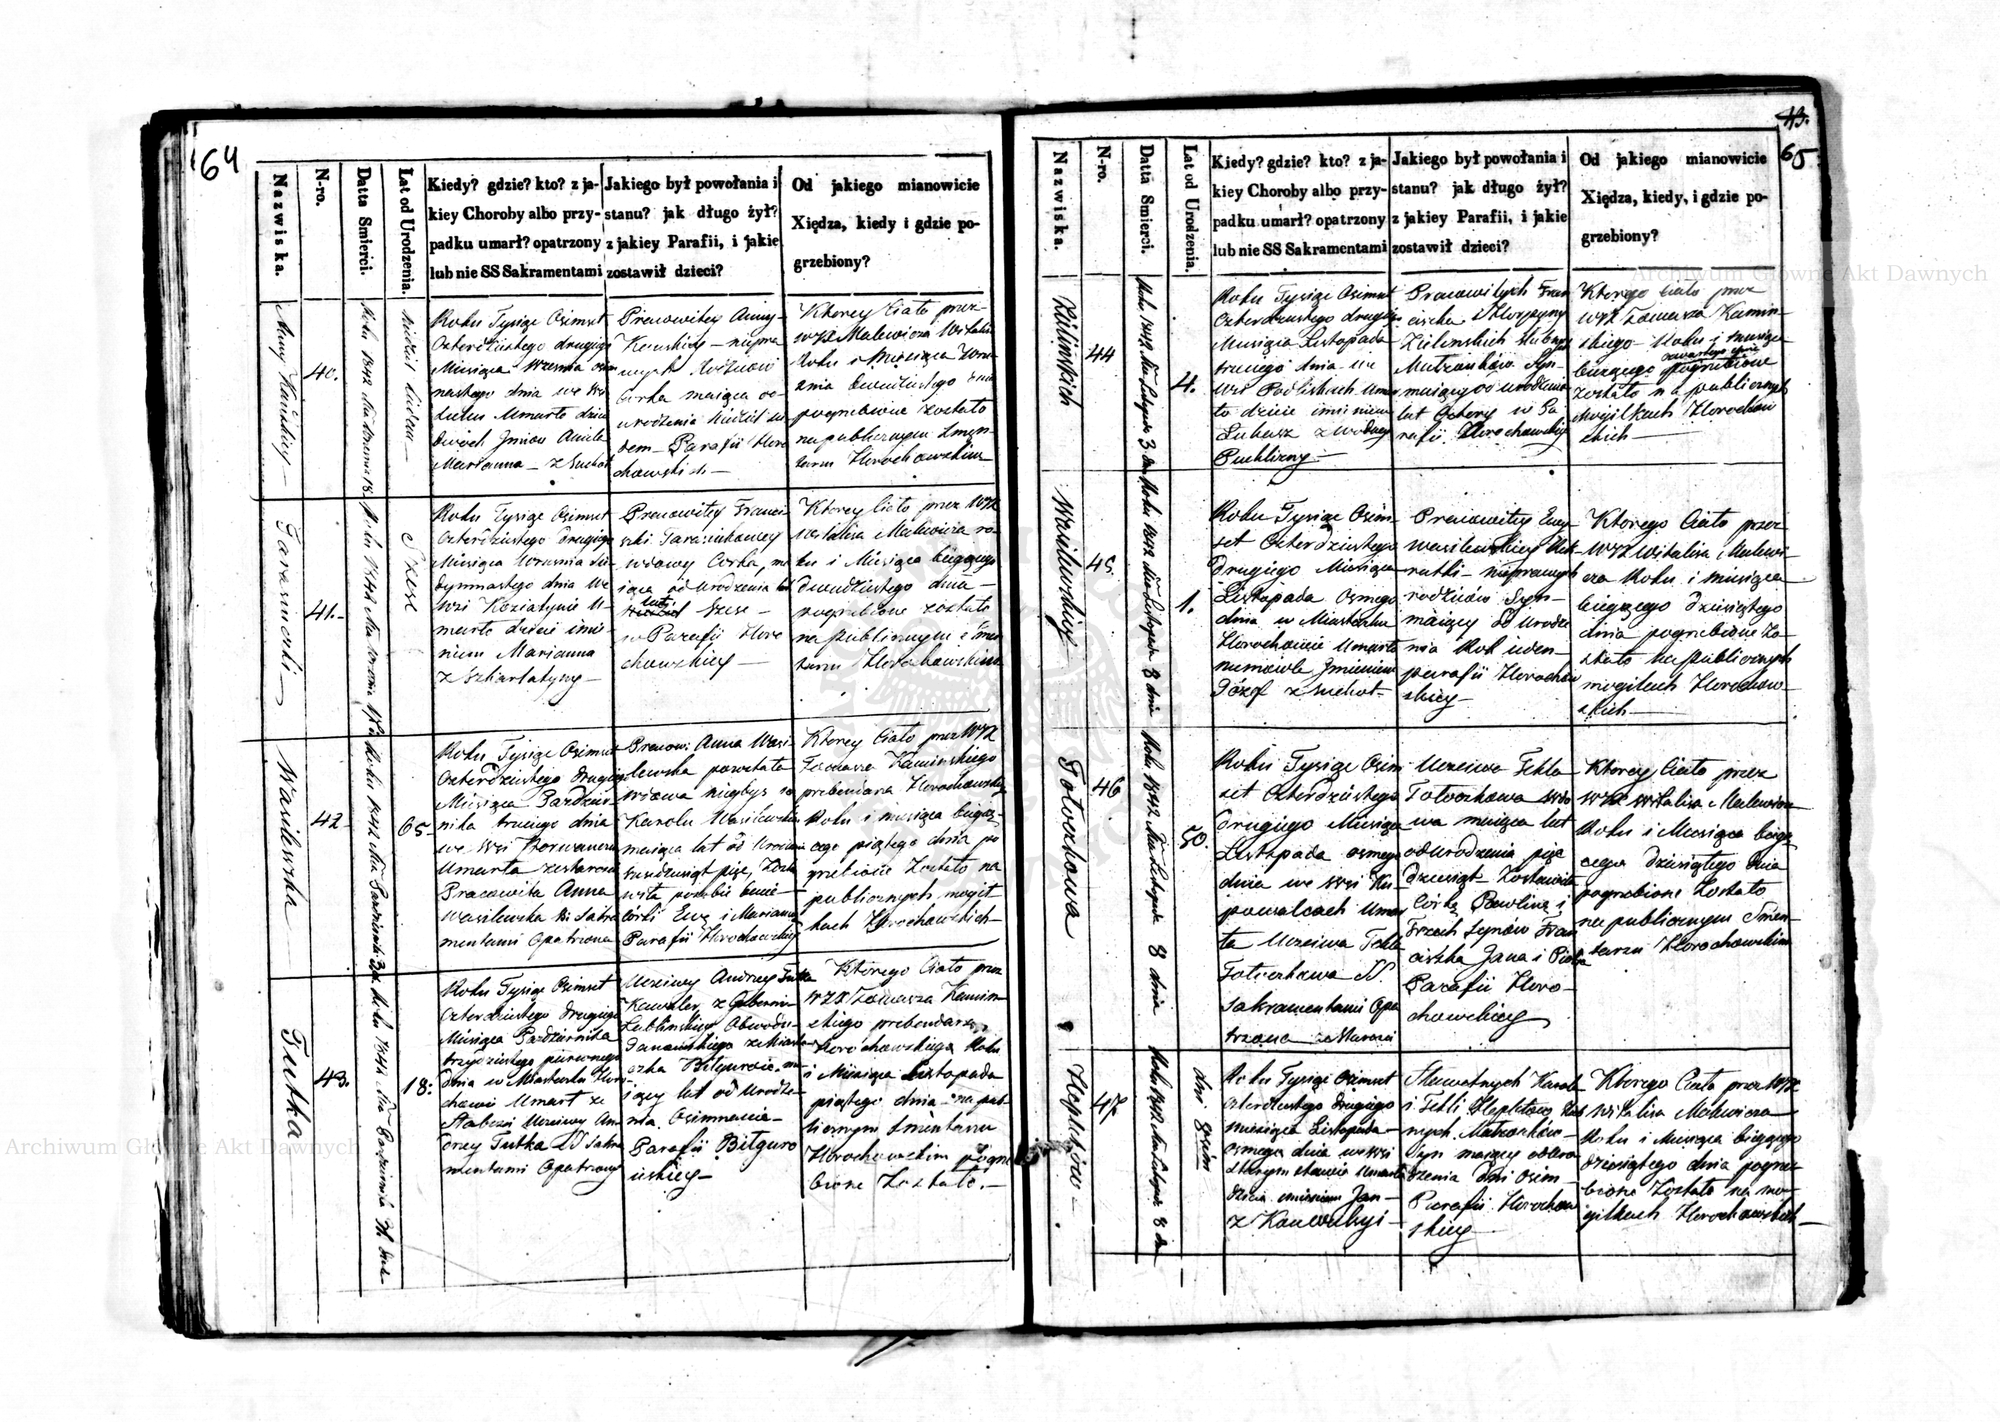 64
Nazwiska.
N-ro.
Datta Śmierci.
Lat od Urodzenia.
Kiedy? gdzie? kto? z ja-
kiey Choroby albo przy-
padku umarł? opatrzony
lub nie SS Sakramentami
Jakiego był powołania i
stanu? jak długo żył?
z jakiey Parafii, i jakie
zostawił dzieci?
Od jakiego mianowicie
Xiędza, kiedy i gdzie po-
grzebiony?
40.
Roku Tysiąc Osimset
Czterdziestego drugiego
Miesiąca Września
nastego dnia we wsi
Umarło
Imion Aniela
Marianna – z Suchot
Pracowitey Anny
Kańskiey – niepra
wych Rodziców
Corka maiąca od
urodzenia Niedziel sie
dem – Parafii Horo
chowskich –
Ktorey Ciało przez
WJX Malewicza Witalisa
Roku i Miesiąca
dnia
pogrzebione zostało
na publicznym Smen-
tarzu Horochowskim
Tarasiucki
41.
Szesć
Roku Tysiąc Osimset
Czterdziestego drugiego
Miesiąca Września sie
dymnastego dnia we
wsi Koziatynie U-
marło dziecie imie-
niem Marianna
z Szkarlatyny –
Pracowitey Franci
szki Tarasiukowey
wdowey Corka, ma
iąca od Urodzenia
lat Szesc –
w Parafii Horo
chowskiey –
Ktorey Ciało przez WJX
Witalisa Malewicza ro-
ku i Miesiąca bieżącego
dwudziestego dnia –
pogrzebione zostało
na publicznym Smen
tarzu Horochowskim
Wasilewska
42
65
Roku Tysiąc Osimset
Czterdziestego drugiego
Miesiąca Pazdzier-
nika trzeciego dnia
we wsi
Umarła ze starości
Pracowita Anna
Wasilewska SS: Sakra
mentami Opatrzona
Pracowi: Anna Wasi-
lewska pozostała
wdowa niegdys po
Karolu Wasilewskim
maiąca lat od Urodzenia
sześdziesiąt pięc, Zosta
wiła po sobie dwie
córki Ewę i Mariannę
Parafii Horochowskiey
Ktorey Ciało przez WJX
Tomasza Kaminskiego
prebendarza Horochowskiego
Roku i miesiąca bieżą-
cego piątego dnia po
grzebione Zostało na
publicznych mogił
kach Horochowskich –
Tutka
43.
18:
Roku Tysiąc Osimset
Czterdziestego drugiego
Miesiąca Pazdziernika
trzydziestego pierwszego
dnia w Miasteczku Horo
chowie Umarł ze
Słabości Uczciwy An
drzey Tutka SS Sakra
mentami Opatrzony
Uczciwy Andrzey Tutka
Kawaler z Gubernii
Lubelskiey Obwodu
ze Miaste
czka Biłguraia, ma
iący lat od Urodze
nia Osimnaście –
Parafii Biłguro
iskiey –
Ktorego Ciało przez
WJX Tomasza Kamin
skiego prebendarza
Horochowskiego Roku
i Miesiąca Listopada
piątego dnia – na pub
licznym Smentarzu
Horochowskim pogrze
bione Zostało. –
43.
65
Nazwiska.
N-ro.
Datta Śmierci.
Lat od Urodzenia.
Kiedy? gdzie? kto? z ja-
kiey Choroby albo przy-
padku umarł? opatrzony
lub nie SS Sakramentami
Jakiego był powołania i
stanu? jak długo żył?
z jakiey Parafii, i jakie
zostawił dzieci?
Od jakiego mianowicie
Xiędza, kiedy, i gdzie po-
grzebiony?
Zielinskich
44
4.
Roku Tysiąc Osimset
Czterdziestego drugiego
Miesiąca Listopada
trzeciego dnia we
wsi Podliskach Umar
ło dziecie imieniem
Łukasz z Wodney
Puchliny –
Pracowitych Fran
ciszka i Horpyny
Zielinskich slubnych
Małżonków Syn –
maiący od urodzenia
lat Cztery w Pa
rafii Horochowskiey
Ktorego Ciało przez
WJX Tomasza Kamin-
skiego – Roku i miesiąca
bieżącego czwartego dnia pogrzebione
zostało na publicznych
mogiłkach Horochow
skich –
Wasilewskiey
45.
1.
Roku Tysiąc Osim-
set Czterdziestego
drugiego Miesiąca
Listopada Osmego
dnia w Miasteczku
Horochowie Umarło
niemowle Imieniem
Józef z Suchot –
Pracowitey Ewy
Wasilewskiey
nieprawych
rodziców Syn –
maiący Od Urodze
nia Rok ieden –
parafii Horochow
skiey –
Ktorego Ciało przez
WJX Witalisa Malewi-
cza Roku i miesiąca
bieżącego dziesiątego
dnia pogrzebione Zo-
stało na publicznych
mogiłach Horochow-
skich –
Tołoczkowa
46
50.
Roku Tysiąc Osim
set Czterdziestego
drugiego Miesiąca
Listopada osmego
dnia we wsi Ko-
powalcach Umar
ła Uczciwa Tekla
Tołoczkowa SS.
Sakramentami Opa
trzona
Uczciwa Tekla
Tołoczkowa wdo
wa maiąca lat
od Urodzenia pięc
dziesiąt – Zostawiła
Corkę Pawlinę i
Trzech Synów Fran
ciszka Jana i Piotra
Parafii Horo-
chowskiey
Ktorey Ciało przez
WJX Witalisa Malewicza
Roku i Miesiąca bieżą-
cego dziesiątego dnia
pogrzebione Zostało
na publicznym Smen-
tarzu Horochowskim
47
dni osim
Roku Tysiąc Osimset
Czterdziestego drugiego
miesiąca Listopada –
osmego dnia we wsi
Umarło
dziecie imieniem Jan –
z Konwulsyi –
Sławetnych Karola
i Tekli
Małżonków –
Syn maiący od Uro
dzenia dni osim –
Parafii Horochow
skiey
Ktorego Ciało przez WJX
Witalisa Malewicza
Roku i Miesiąca bieżącego
dziesiątego dnia pogrze
bione Zostało na mo-
giłkach Horochowskich –
Archiwum Główne Akt Dawnych
Archiwum Główne Akt Dawnych